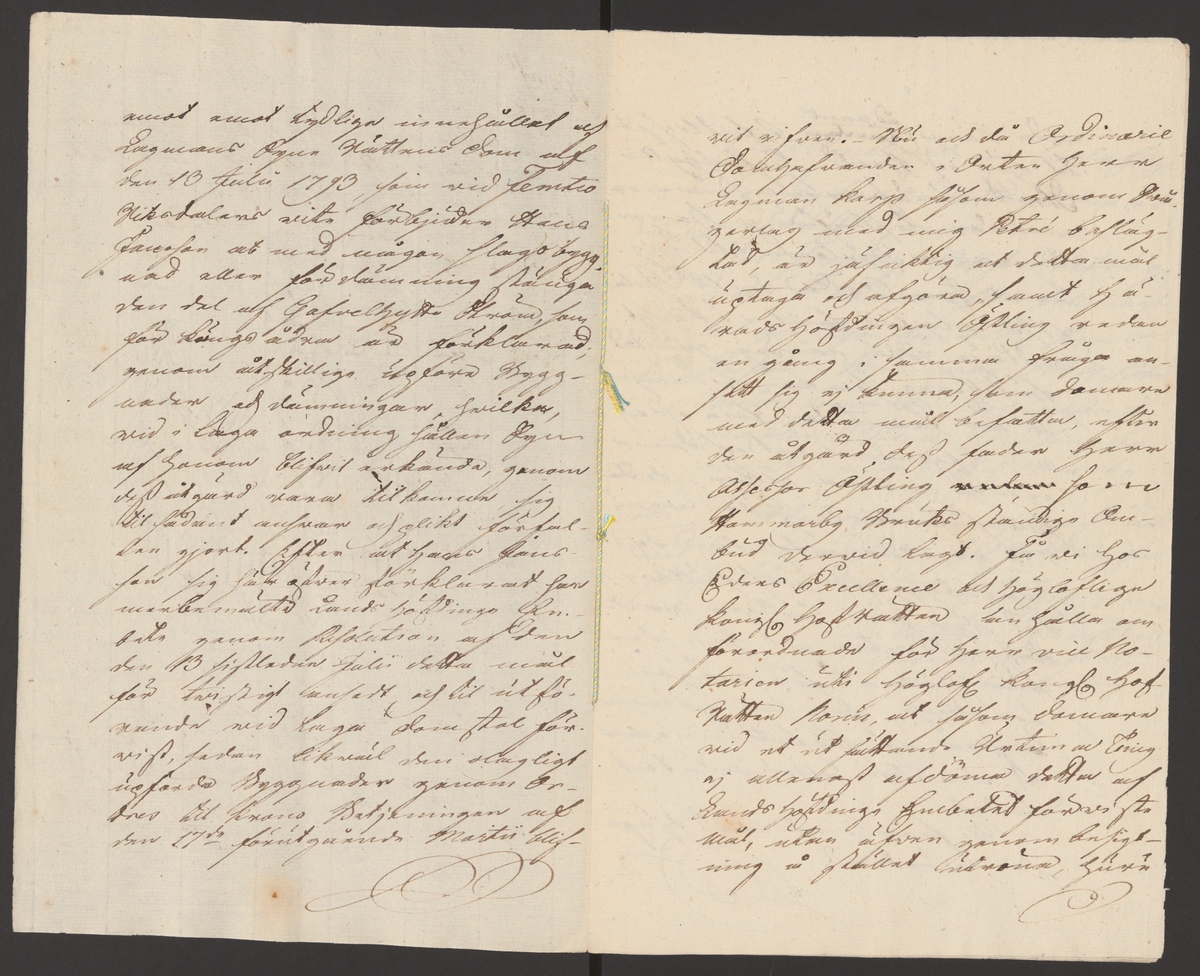 emot emot tydliga innehållet af
Lagmans Syne Rättens Dom af
den 13 Julii 1793 som vid Femtio
Riksdalers vite förbjuder Hans
Jansson at med någon slags bygg-
nad eller fördämning stänga
den del af Gafvelhytte Ström, som
för Kongsådra är förklarad,
genom åtskillige upförde Bygg-
nader och dämningar, hvilka,
vid i Laga ordning hållen Syn
af honom blifvit erkände, genom
dess åtgärd vara tilkomne sig
til sådant ansvar och plikt förfal-
len gjort. Efter at Hans Jans-
son sig häröfver förklarat har
merbemälte Lands Höfdinge Em-
bete genom Resolution af den
den 13 sistleden Julii detta mål
för tvistigt ansedt och til utfö-
rande vid Laga Domstol för-
vist, sedan likväl den olagligt
upförde Byggnaden genom Or-
dres til Krono Betjeningen af
den 17de förutgående Martii blif-
vit rifven. Nu och då Ordinarie
Domhafvanden i Orten Herr
Lagman Karp såsom genom Svå-
gerlag med mig Petré besläg-
tad, är jäfviktig at detta mål
uptaga och afgöra, samt Hä-
rads Höfdingen Östling redan
en gång i samma fråga an-
sett sig ej kunna, som Domare
med detta mål befatta, efter
den åtgärd dess fader Herr
Assessor Östling som
Hammarby Bruks ständige Om-
bud dervid tagt. Få vi hos
Eders Excellence och Högloflige
Kongl Hofrätten anhålla om
förordnade för Herr vice No-
tarien uti Höglofl Kongl Hof
Rätten Norin, at såsom Domare
vid et utsättande Urtima Ting
ej allenast afdöma detta af
Lands Höfdinge Embetet förviste
Mål, utan äfven genom besigt-
ning å stället utröna, huru